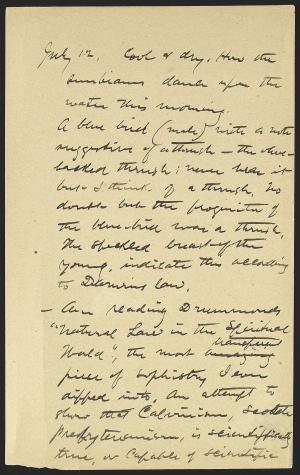 July 12. Cool & dry. How the
sunbeams dance upon the
water this morning.
A blue bird (male) with a note
suggestive of a thrush – the olive-
backed thrush; never hear it
but I think of a thrush. No
doubt but the progenitor of
the blue-bird was a thrush,
the speckled breast of the
young, indicate this according
to Darwins law.
– Am reading Drummonds
"Natural Law in the Spiritual
World", the most
piece of sophistry I ever
dipped into. An attempt to
show that Calvinism, scotch
Presbyterianism, is scientifically
true, or capable of scientific